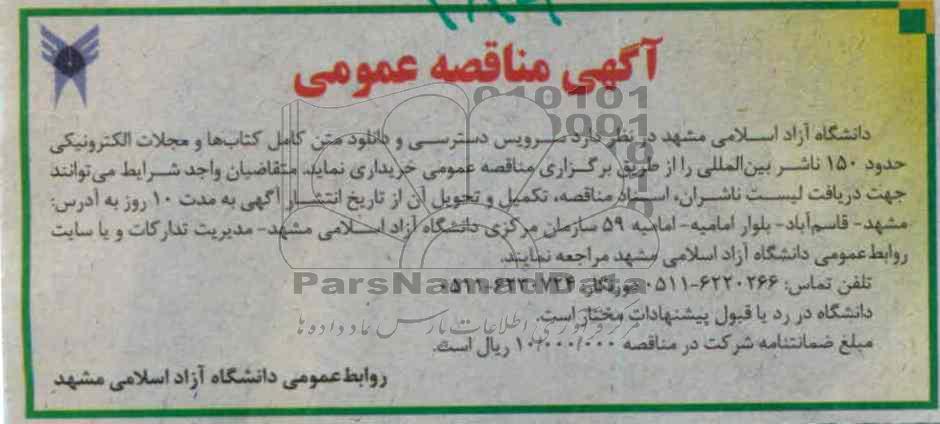 آگهی مناقصه عمومی
دانشگاه آزاد اسلامی مشهد در نظر دارد سرویس دسترسی و دانلود متن کامل کتاب‌ها و مجلات الکترونیکی
حدود ۱۵۰ ناشر بین‌المللی را از طریق برگزاری مناقصه عمومی خریداری نماید. متقاضیان واجد شرایط می‌توانند
جهت دریافت لیست ناشران، اسناد مناقصه، تکمیل و تحویل آن از تاریخ انتشار آگهی به مدت ۱۰ روز به آدرس:
مشهد- قاسم‌آباد- بلوار امامیه- امامیه ۵۹ سازمان مرکزی دانشگاه آزاد اسلامی مشهد- مدیریت تدارکات و یا سایت
روابط‌عمومی دانشگاه آزاد اسلامی مشهد مراجعه نمایند.
ParsNamadData
تلفن تماس: ۶۲۲۰۲۶۶-۰۵۱۱ دورنگار: ۶۲۲۰۷۲۴-۰۵۱۱
دانشگاه در رد یا قبول پیشنهادات مختار است.
مرکز فرآوری اطلاعات پارس نماد داده ها
مبلغ ضمانتنامه شرکت در مناقصه ۱۰/۰۰۰/۰۰۰ ریال است.
روابط‌عمومی دانشگاه آزاد اسلامی مشهد